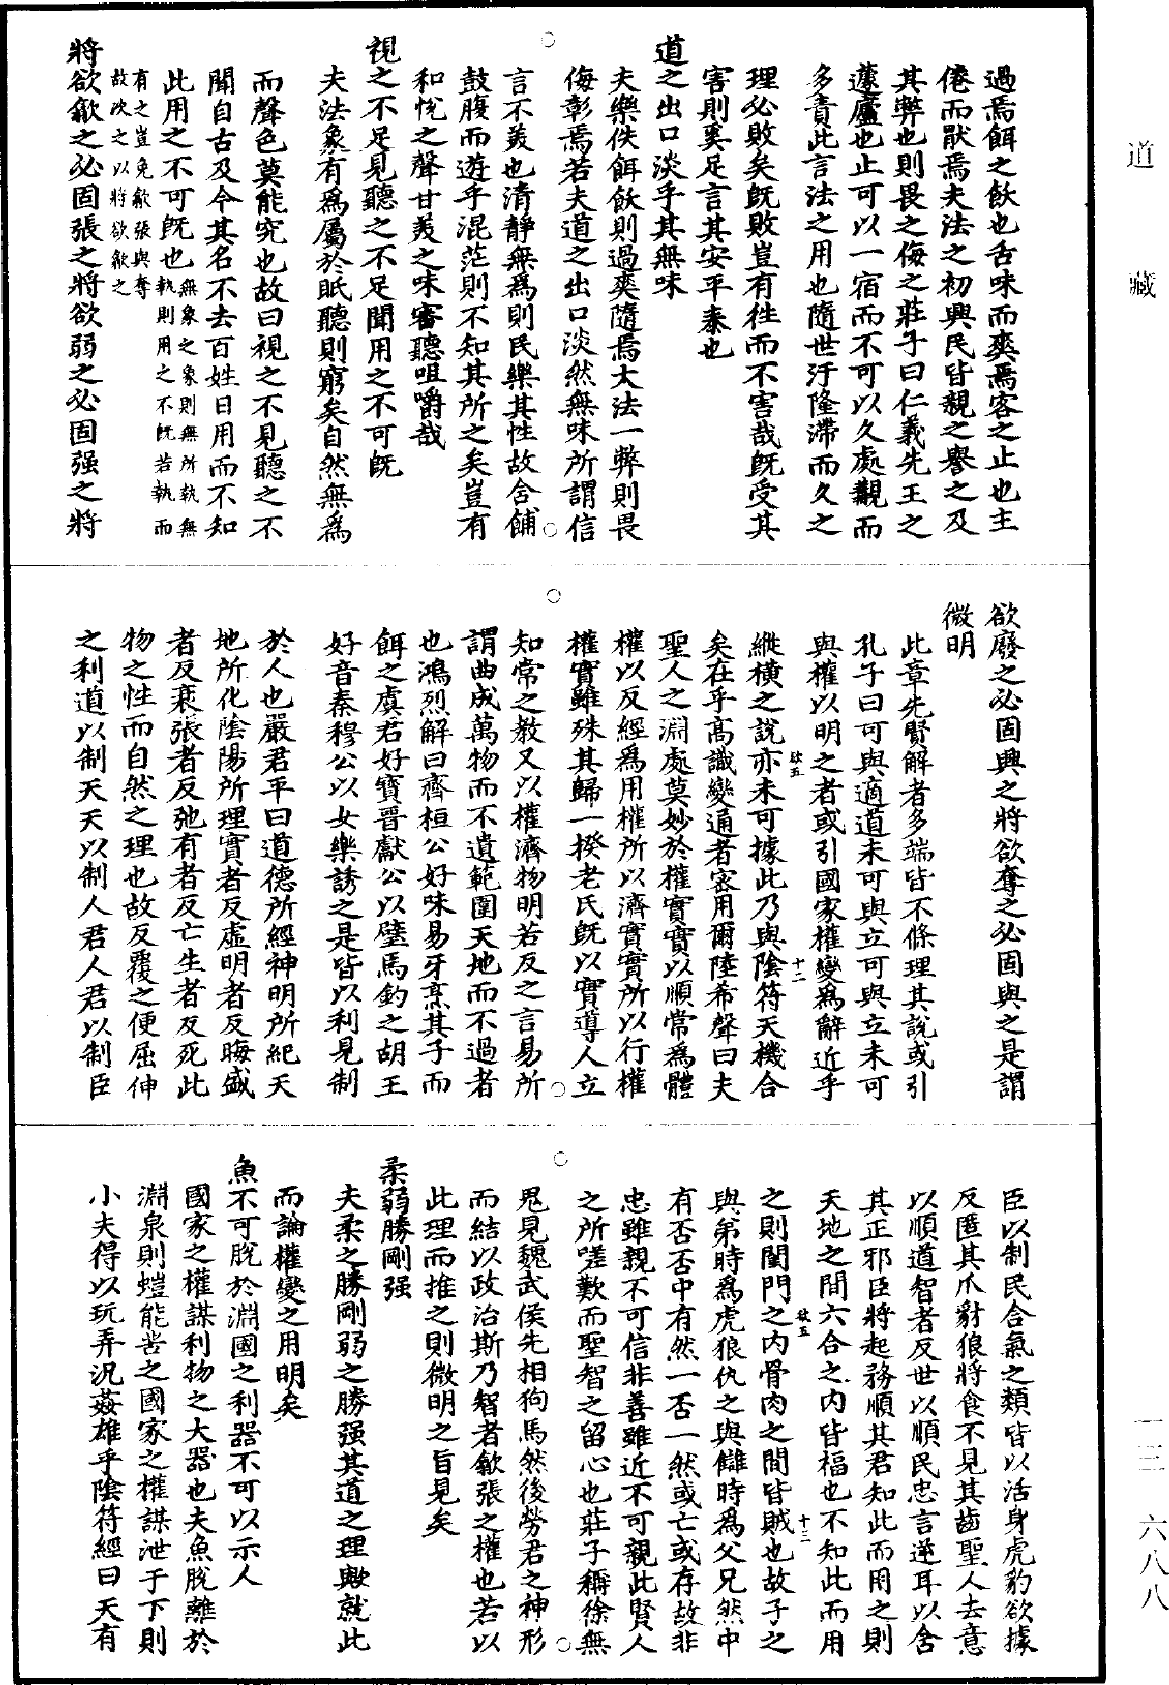 過焉餌之飲也舌味而爽焉客之止也主
倦而猒焉夫法之初興民皆親之譽之及
其弊也則畏之侮之莊子曰仁義先王之
蘧廬也止可以一宿而不可以久處觀而
多責此言法之用也隨世汙隆滯而久之
理必敗矣既敗豈有徃而不害哉既受其
害則奚足言其安平泰也
道之出口淡乎其無味
夫樂佚餌飲則過爽隨焉大法一弊則畏
侮彰焉若夫道之出口淡然無味所謂信
言不美也清靜無為則民樂其性故含餔
鼓腹而遊乎混茫則不知其所之矣豈有
和悅之聲甘美之味審聽咀嚼哉
視之不足見聽之不足聞用之不可既
夫法象有為屬於眂聽則窮矣自然無為
而聲色莫能究也故曰視之不見聽之不
聞自古及今其名不去百姓日用而不知
此用之不可既也無象之象則無所執無
執則用之不既若執而
有之豈免歙張與奪
故次之以將欲歙之
將欲歙之必固張之將欲弱之必固强之將
欲廢之必固興之將欲奪之必固與之是謂
微明
此章先賢解者多端皆不條理其說或引
孔子曰可與適道未可與立可與立未可
與權以明之者或引國家權變為辭近乎
縱橫之說亦未可據此乃與陰符天機合
矣在乎高識變通者密用爾陸希聲曰夫
聖人之淵處莫妙於權實實以順常為體
權以反經為用權所以濟實實所以行權
權實雖殊其歸一揆老氏既以實導人立
知常之教又以權濟物明若反之言易所
謂曲成萬物而不遺範圍天地而不過者
也鴻烈解曰齊桓公好味易牙烹其子而
餌之虞君好寶晉獻公以璧馬釣之胡王
好音秦穆公以女樂誘之是皆以利見制
於人也嚴君平曰道德所經神明所紀天
地所化陰陽所理實者反虛明者反晦盛
者反衰張者反弛有者反亡生者反死此
物之性而自然之理也故反覆之便屈伸
之利道以制天天以制人君人君以制臣
欲五
十二
臣以制民含氣之類皆以活身虎豹欲據
反匿其爪豺狼將食不見其齒聖人去意
以順道智者反世以順民忠言逆耳以含
其正邪臣將起務順其君知此而用之則
天地之間六合之內皆福也不知此而用
之則閨門之內骨肉之間皆賊也故子之
與弟時為虎狼仇之與讎時為父兄然中
有否否中有然一否一然或亡或存故非
忠雖親不可信非善雖近不可親此賢人
之所嗟歎而聖智之留心也莊子稱徐無
鬼見魏武侯先相狗馬然後勞君之神形
而結以政治斯乃智者歙張之權也若以
此理而推之則微明之旨見矣
柔弱勝剛强
夫柔之勝剛弱之勝强其道之理歟就此
而論權變之用明矣
魚不可脫於淵國之利器不可以示人
國家之權謀利物之大器也夫魚脫離於
淵泉則螘能苦之國家之權謀泄于下則
小夫得以玩弄況姦雄乎陰符經曰天有
欲五
十三
道
藏
一三
六八八